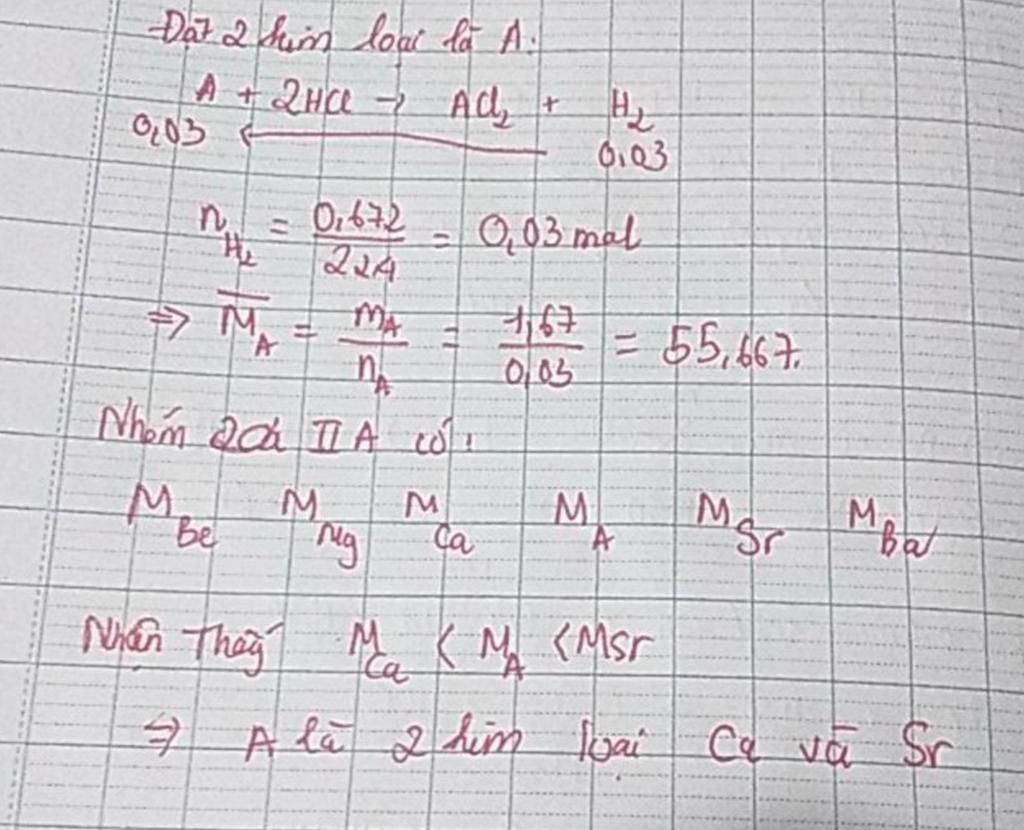 Đặt 2 kim loại là A.
A + 2HCl → ACl₂ + H₂
0,03 ← 0,03
n_H₂ = 0,672/22,4 = 0,03 mol
⇒ M̅_A = m_A/n_A = 1,67/0,03 = 55,667.
Nhóm IIA có:
M_Be M_Mg M_Ca M_A M_Sr M_Ba
Nhận Thấy M_Ca < M_A < MSr
⇒ A là 2 kim loại Ca và Sr